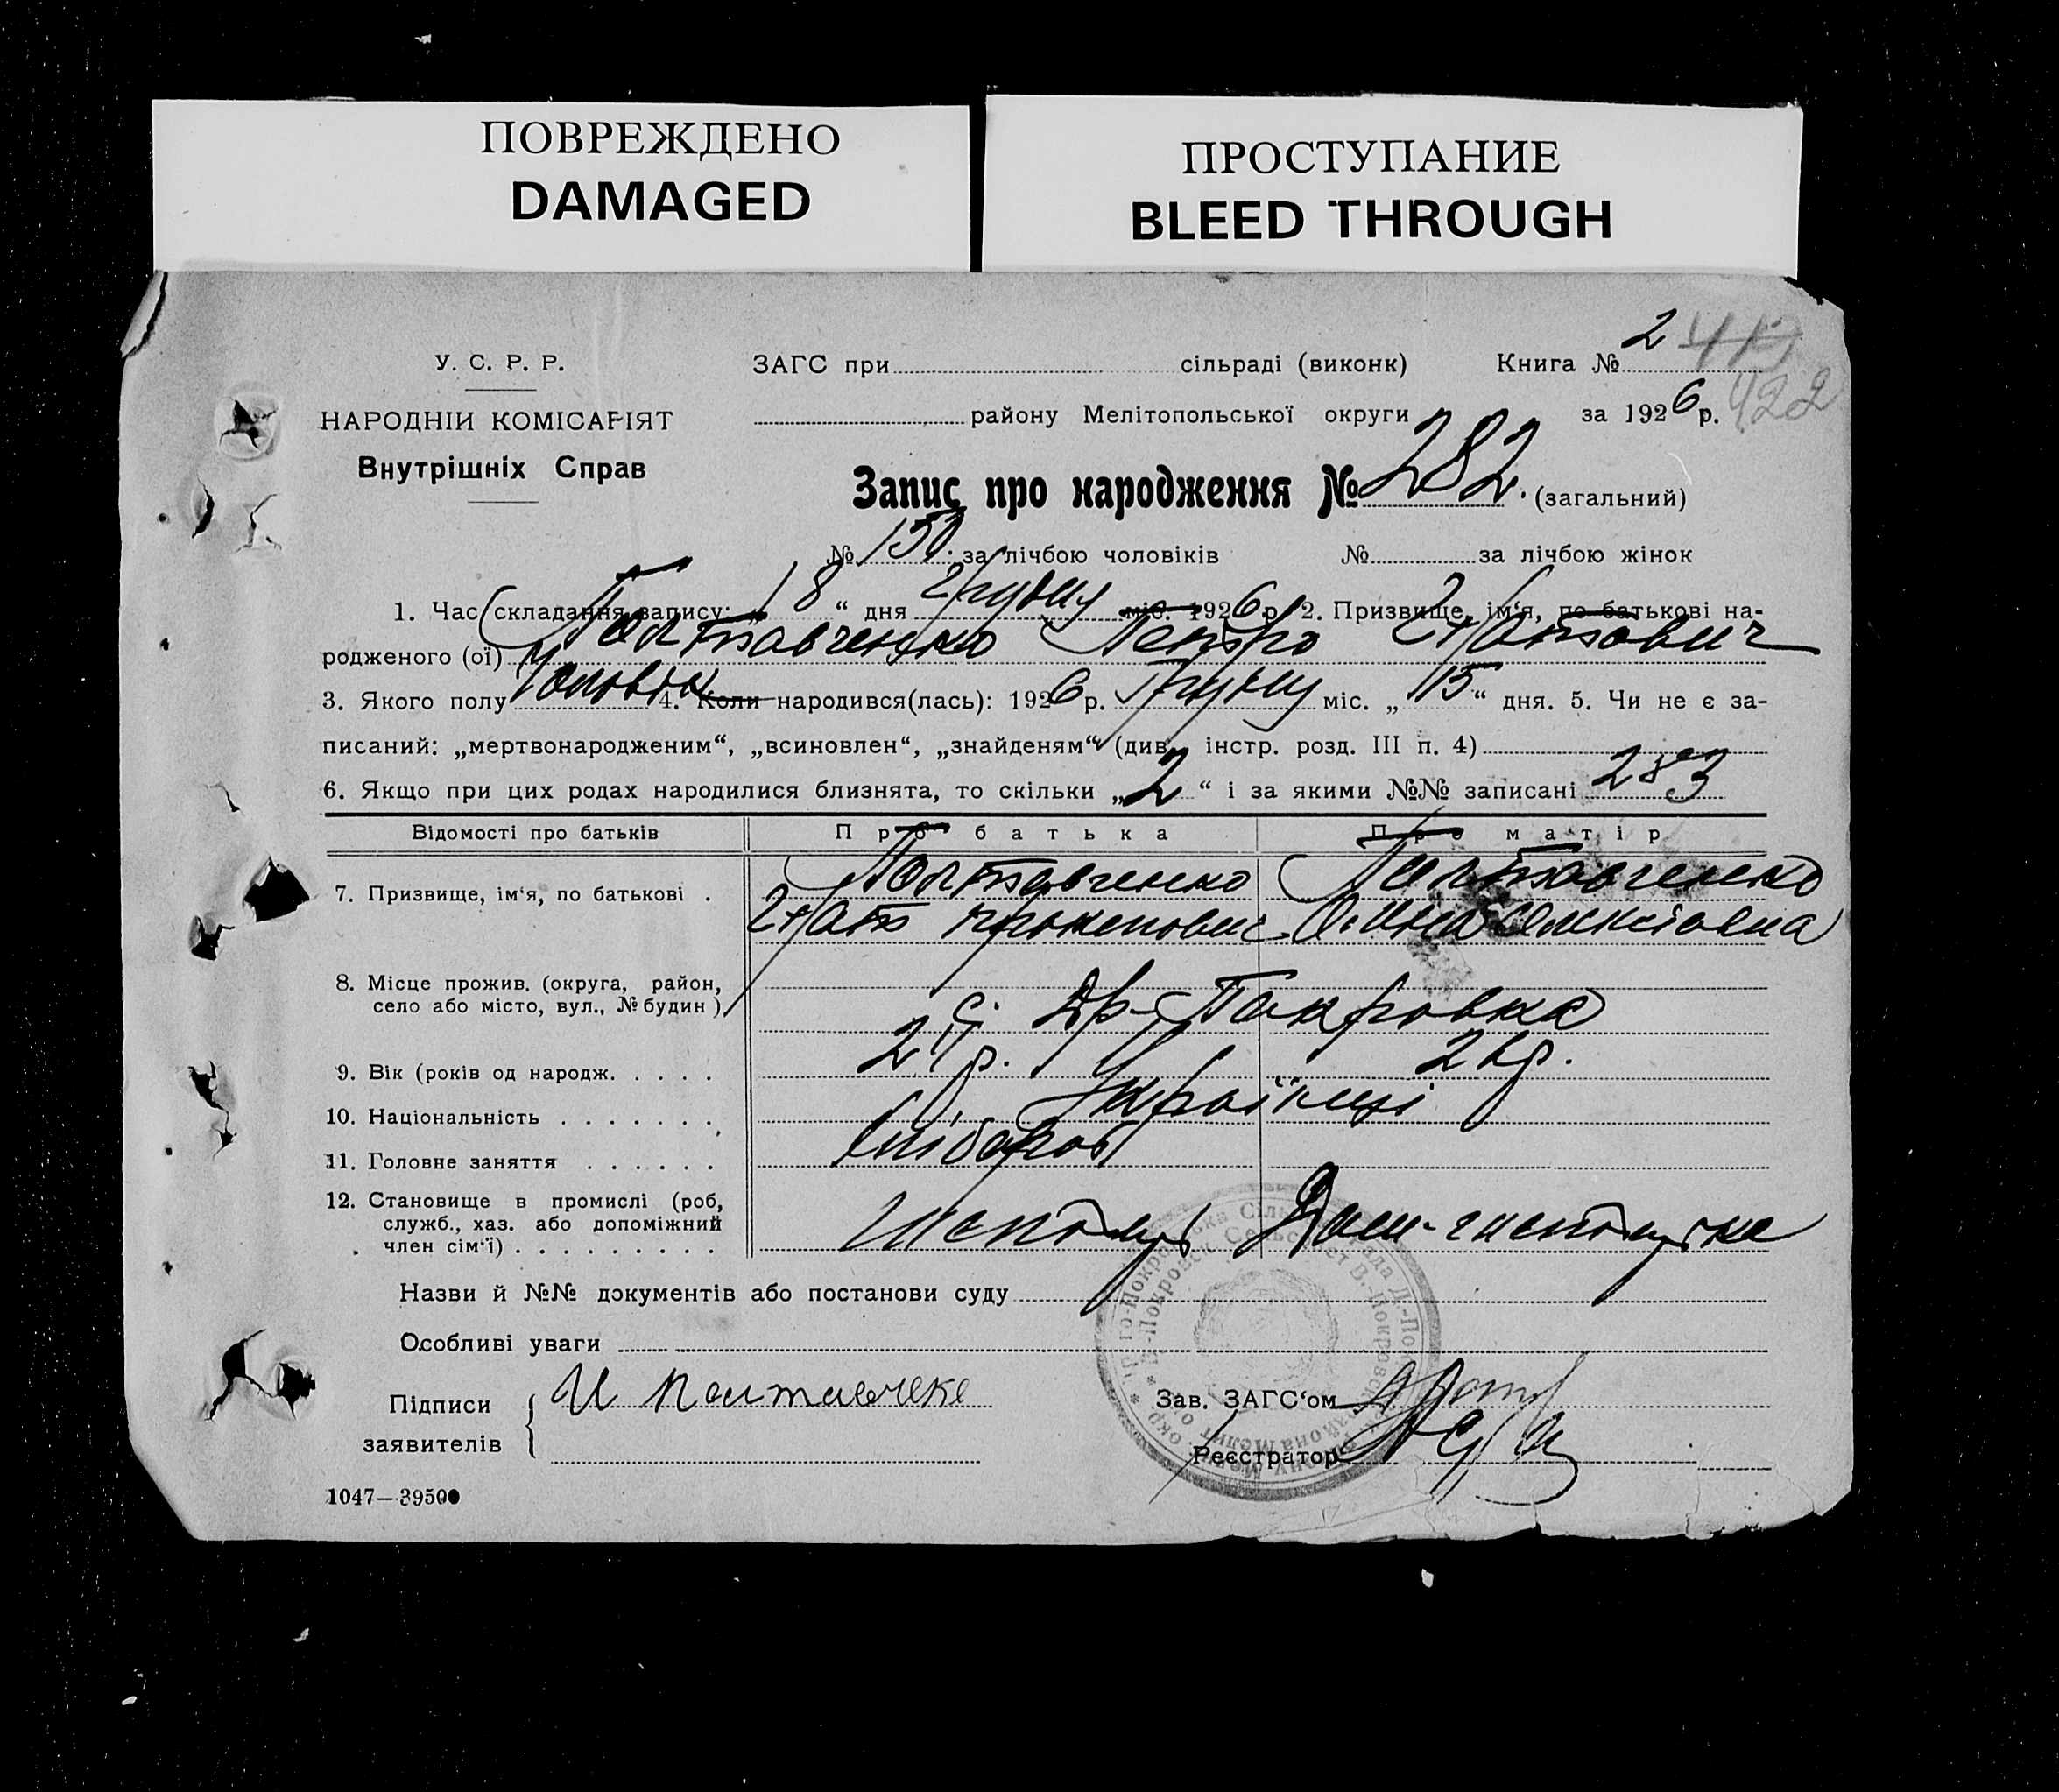 ПОВРЕЖДЕНО
DAMAGED
ПРОСТУПАНИЕ
BLEED THROUGH
У. С. Р. Р.
НАРОДНІЙ КОМІСАРІЯТ
Внутрішніх Справ
ЗАГС при сільраді (виконк) Книга № 2
422
району Мелітопольської округи за 1926 р.
Запис про народження № 282. (загальний)
№ 150. за лічбою чоловіків № за лічбою жінок
1. Час складання запису: „18“ дня Грудня міс. 1926 р. 2. Призвище, ім‘я, по батькові на-
родженого (ої) Полтавченко Петро
3. Якого полу Чоловік 4. Коли народився(лась): 1926 р. Грудня міс. „15“ дня. 5. Чи не є за-
писаний: „мертвонародженим“, „всиновлен“, „знайденям“ (див. інстр. розд. III п. 4)
6. Якщо при цих родах народилися близнята, то скільки „2“ і за якими №№ записані 283
Відомості про батьків Про батька Про матір
7. Призвище, ім‘я, по батькові . Полтавченко Полтавченко
Прокопович
8. Місце прожив. (округа, район,
село або місто, вул., № будин) с. Др-Покровка
9. Вік (років од народж. . . . . 21 р.
10. Національність . . . . . . . Українці
11. Головне заняття . . . . . . Хлібороб
12. Становище в промислі (роб,
служб., хаз. або допоміжний
член сім‘ї) . . . . . . . . .
Назви й №№ документів або постанови суду
Особливі уваги
Підписи
заявителів
И Полтавчеке
Зав. ЗАГС‘ом
Реєстратор
1047—39500